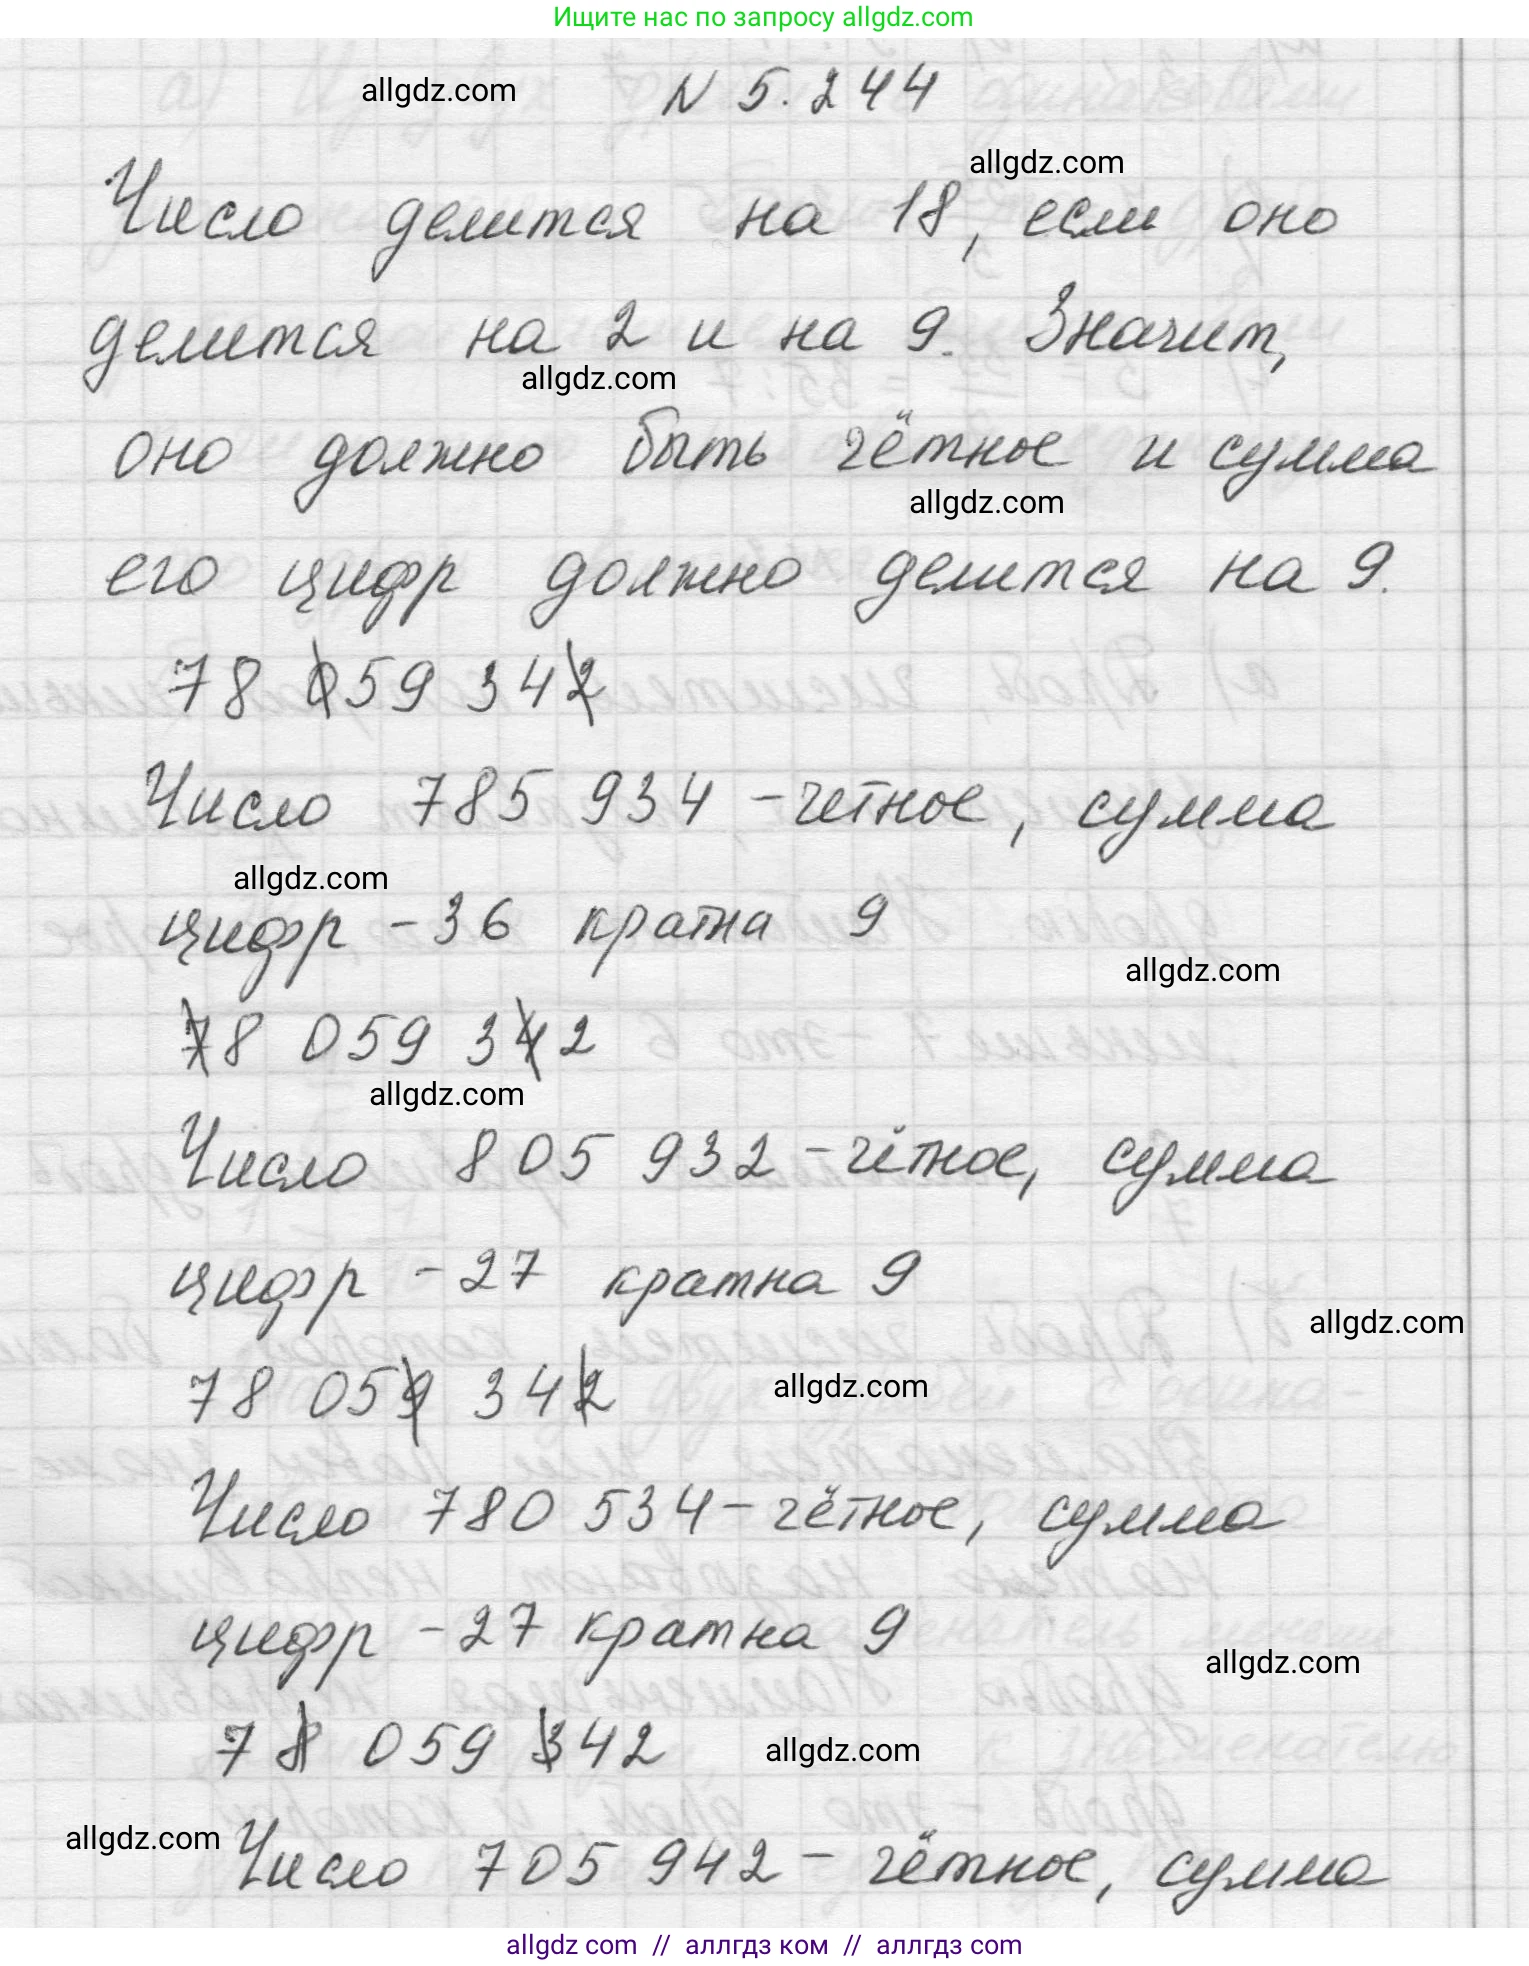 Ищите нас по запросу allgdz.com
allgdz.com
N 5.244
allgdz.com
Число делится на 18, если оно
делится на 2 и на 9. Значит,
allgdz.com
оно должно быть чётное и сумма
allgdz.com
его цифр должно делится на 9.
78 059 342
Число 785 934 - четное, сумма
allgdz.com
цифр - 36 кратна 9
allgdz.com
78 059 342
allgdz.com
Число 805 932 - чётное, сумма
цифр - 27 кратна 9
allgdz.com
78 059 342
allgdz.com
Число 780 534 - чётное, сумма
цифр - 27 кратна 9
allgdz.com
78 059 342
allgdz.com
allgdz.com
Число 705 942 - чётное, сумма
allgdz com // аллгдз ком // аллгдз com